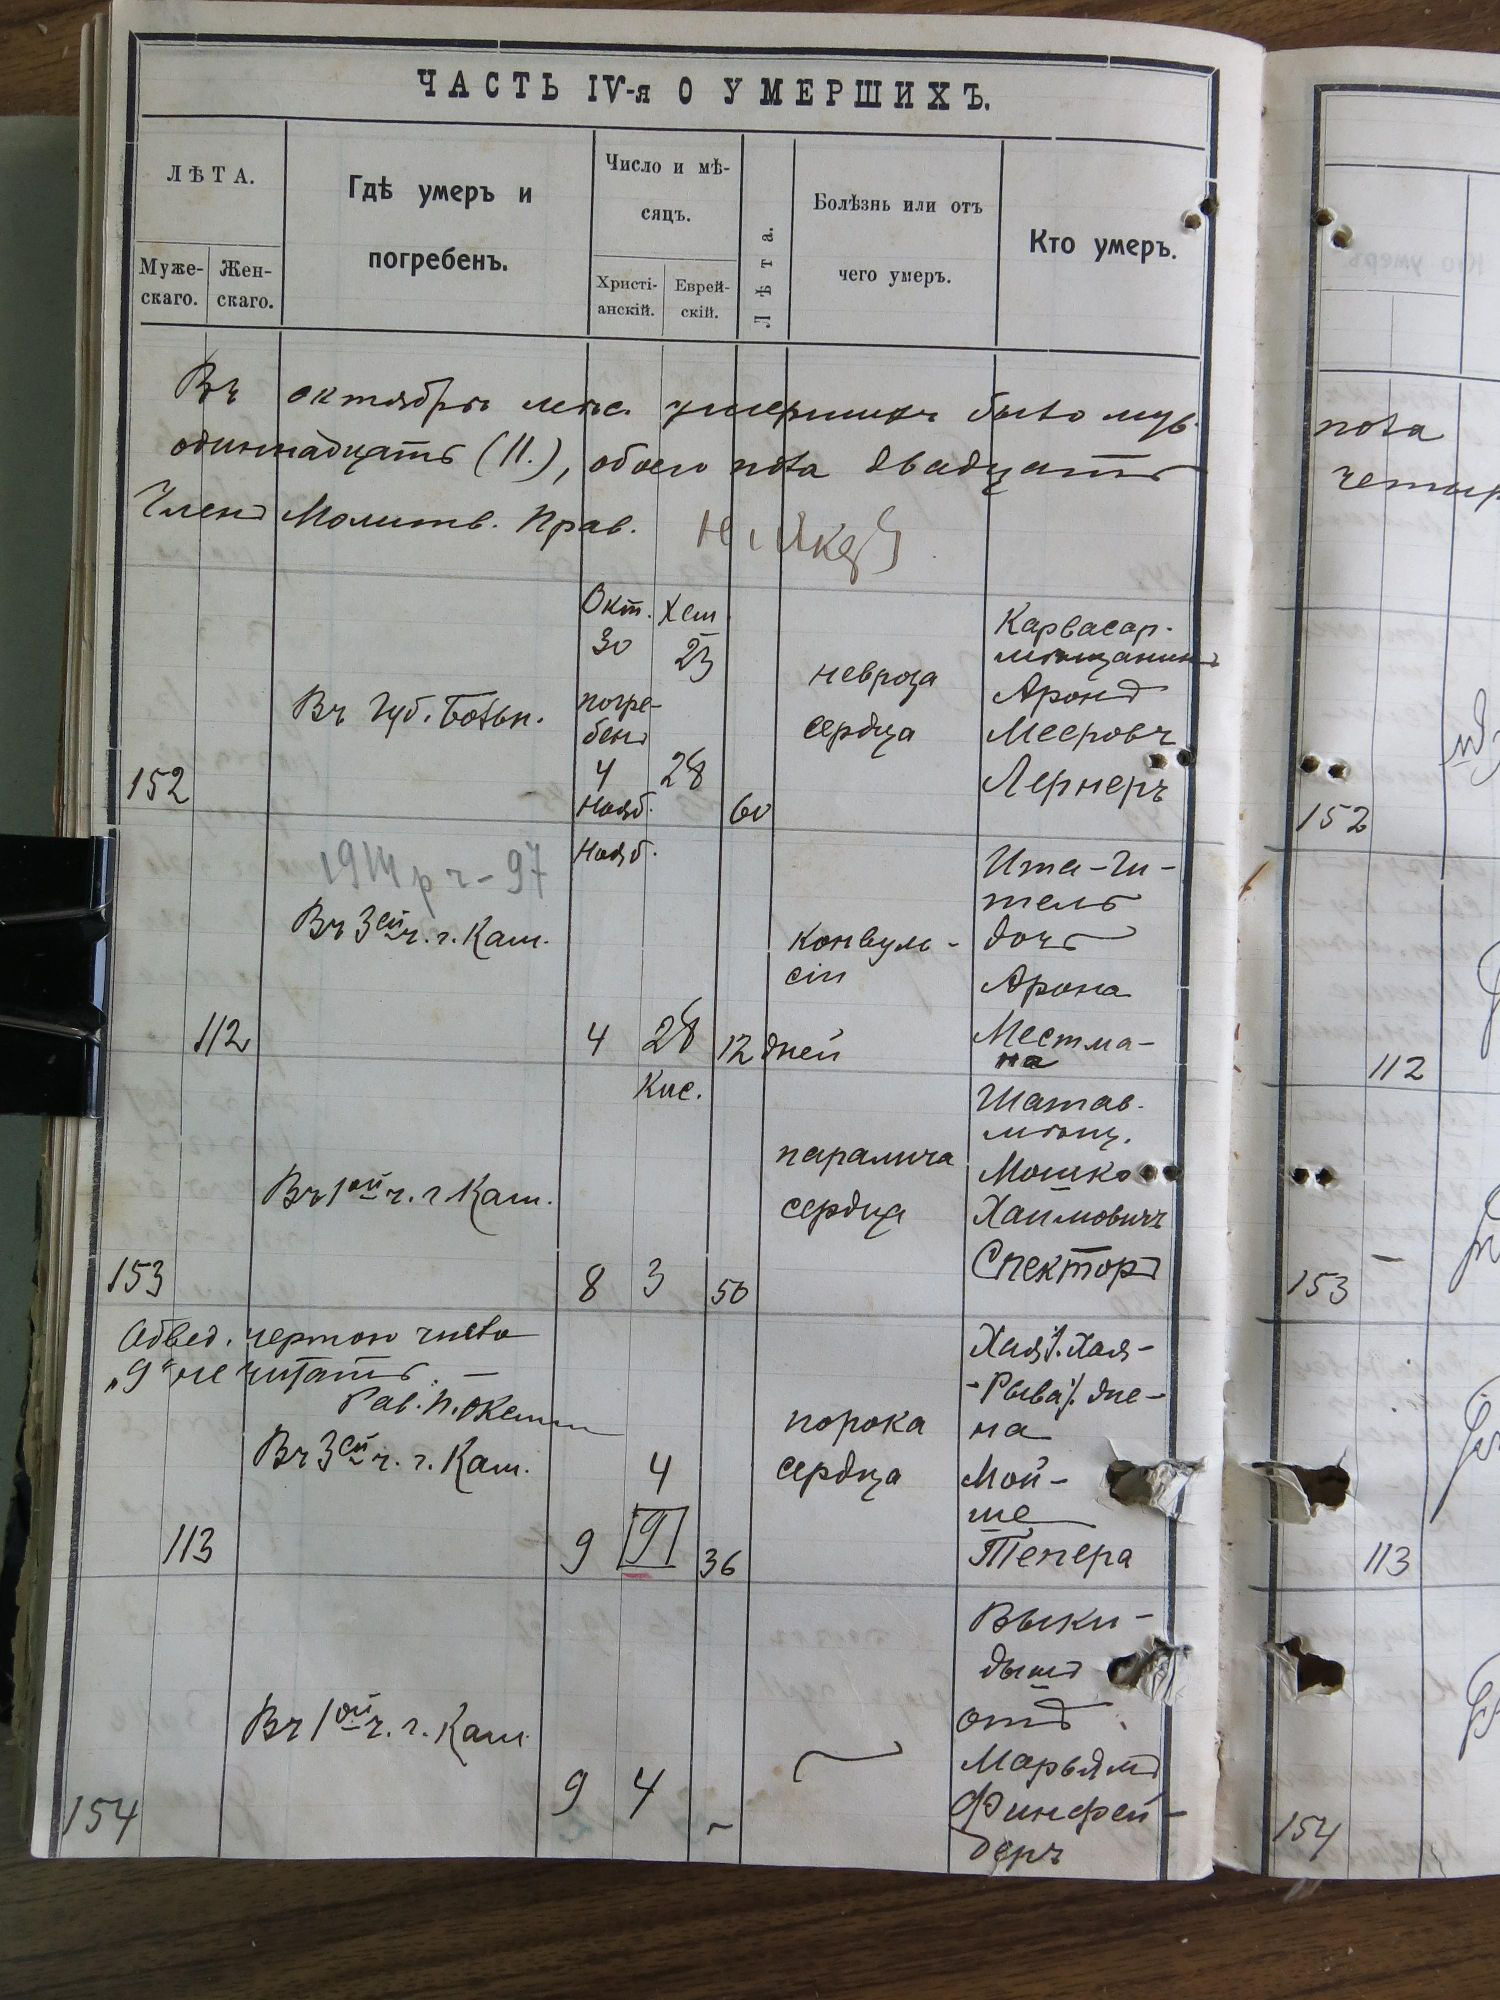 ЧАСТЬ IV-я О УМЕРШИХЪ.
ЛѢТА.
Муже-
скаго.
Жен-
скаго.
Гдѣ умеръ и
погребенъ.
Число и мѣ-
сяцъ.
Христі-
анскій.
Еврей-
скій.
Лѣта.
Болѣзнь или отъ
чего умеръ.
Кто умеръ.
Въ октябрѣ мѣс. умершихъ было муж.
одиннадцать (11.), обоего пола двадцать
Членъ Молитв. Прав.
152
Въ Губ. Больн.
Окт.
30
погре-
бенъ
4
Нояб.
Хеш.
23
28
60
невроза
сердца
Карвасар.
мѣщанинъ
Аронъ
Мееровъ
Лернеръ
1914 р ч-97
112
Въ 3ей ч. г. Кам.
Нояб.
4
28
12 дней
конвуль-
сіи
Ита-Ги-
тель
дочь
Арона
Местма-
на
153
Въ 1ой ч. г. Кам.
8
Кис.
3
50
паралича
сердца
Шатав.
мѣщ.
Мошко
Хаимовичъ
Спекторъ
Обвед. чертою число
„9" не читать. —
Рав.
113
Въ 3ей ч. г. Кам.
9
4
9
36
порока
сердца
Хая-
-Рыва
же-
на
Мой-
ше
Тепера
154
Въ 1ой ч. г. Кам.
9
4
-
Выки-
дышъ
отъ
Марьямъ
Финфей-
беръ
пола
152
112
153
113
154